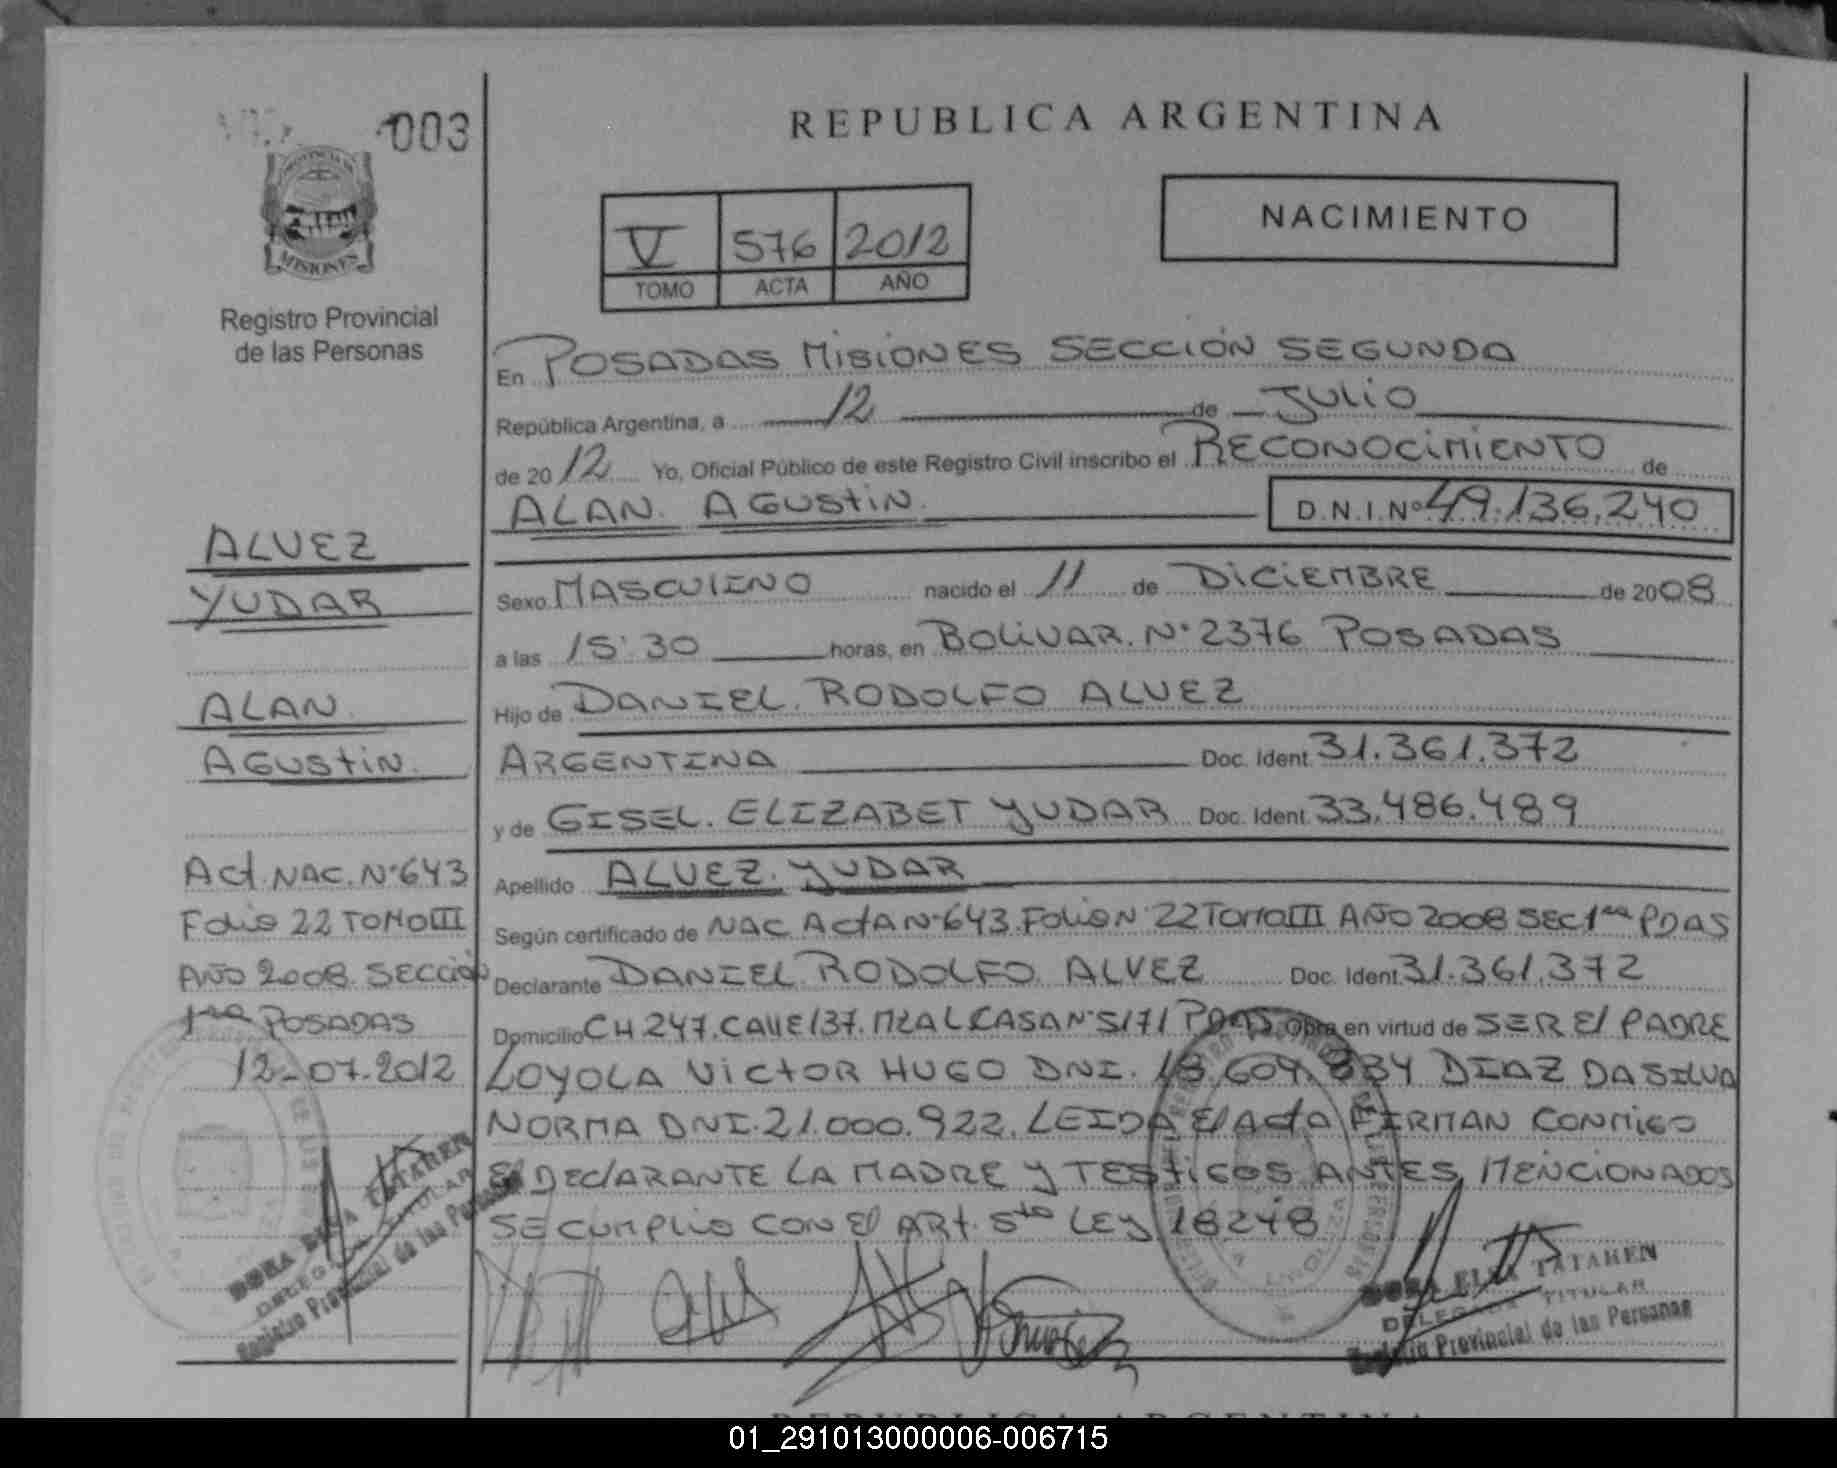 003
PROVINCIA DE
MISIONES
Registro Provincial
de las Personas
REPUBLICA ARGENTINA
V 576 2012
TOMO ACTA AÑO
NACIMIENTO
En POSADAS MISIONES SECCIÓN SEGUNDA
República Argentina, a 12 de JULIO
de 2012 Yo, Oficial Público de este Registro Civil inscribo el RECONOCIMIENTO de
ALAN. AGUSTIN. D.N.I.Nº 49.136.240
Sexo MASCULINO nacido el 11 de DICIEMBRE de 2008
a las 15:30 horas, en BOLIVAR. Nº 2376 POSADAS
Hijo de DANIEL. RODOLFO ALVEZ
ARGENTINA Doc. Ident. 31.361.372
y de GISEL. ELIZABET YUDAR Doc. Ident. 33.486.489
Apellido ALVEZ. YUDAR
Según certificado de NAC ACTA Nº 643 FOLIO Nº 22 TOMO III AÑO 2008 SEC 1ra PDAS
Declarante DANIEL RODOLFO ALVEZ Doc. Ident. 31.361.372
Domicilio CH 247. CALLE 137. MZA L CASA Nº 5171 PDAS Obra en virtud de SER El PADRE
LOYOLA VICTOR HUGO DNI. 18.609.834 DIAZ DASILVA
NORMA DNI. 21.000.922. LEIDA El ACTA FIRMAN CONMIGO
El DECLARANTE LA MADRE Y TESTIGOS ANTES MENCIONADOS
SE CUMPLIO CON El ART. 5to LEY 18248
ALVEZ
YUDAR
ALAN.
AGUSTIN.
Act. NAC. Nº 643
Folio 22 TOMO III
AÑO 2008. SECCIÓN
1ra POSADAS
12-07-2012
DORA ELSA TATAREN
DELEGADA TITULAR
Registro Provincial de las Personas
DORA ELSA TATAREN
DELEGADA TITULAR
Registro Provincial de las Personas
REPUBLICA ARGENTINA
01_291013000006-006715